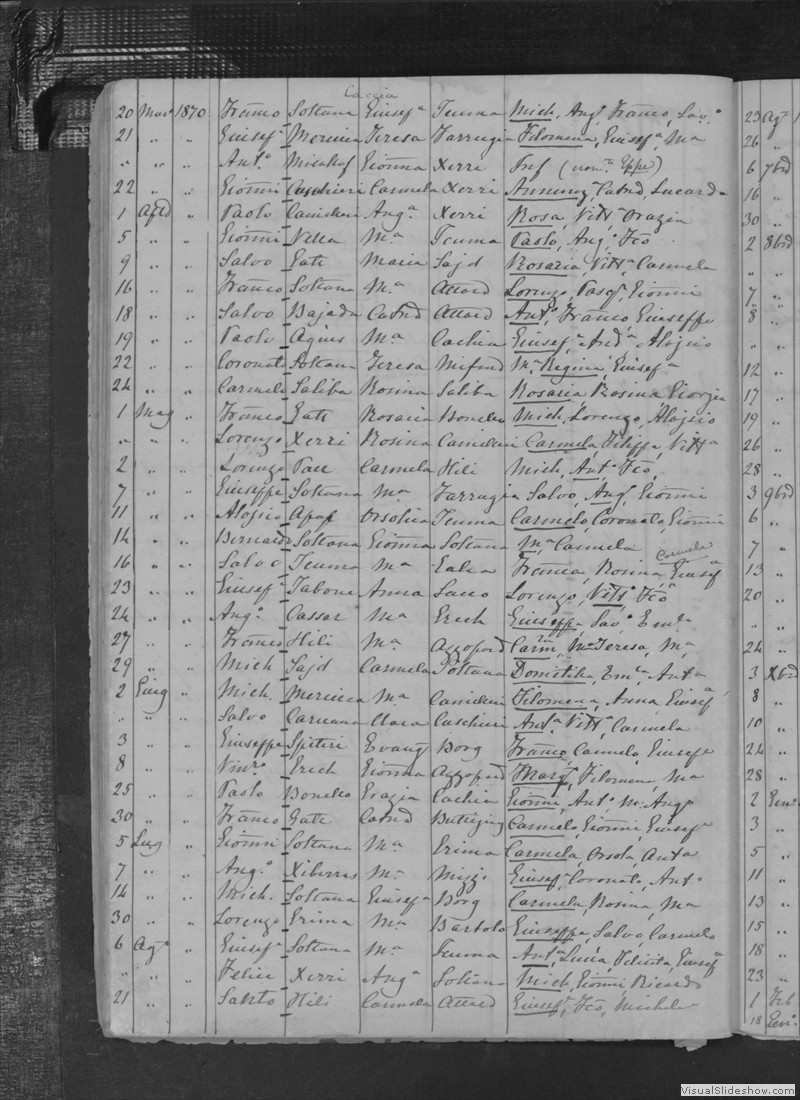 Caccia
20 Mar. 1870 Franco Soltana Giusefa Teuma Mich, Ang, Franco, Sav.
21 " " Giusef Mercieca Teresa Farrugia Filomena, Giusefa, Ma
" " " Ant.o Micallef Gionna Xerri Inf
22 " " Gionni Caschieri Carmela Xerri Annunz, Catnd, Lucarda
1 " Paolo Camilleri Ang.a Xerri Rosa, Vitt.a Grazia
5 " " Gionni Vella Ma Teuma Paolo, Ang, Fco
9 " " Salvo Gatt Maria Sajd Rosaria, Vitt.a Carmela
16 " " Franco Soltana Ma Attard Lorenzo, Pasq, Gionni
18 " " Salvo Bajada Catnd Attard Ant.o, Franco, Giuseppe
19 " " Paolo Agius Ma Cachia Giusef, And.a Aloisio
22 " " Coronato Soltana Teresa Mifsud Ma Regina, Giusefa
24 " " Carmelo Saliba Rosina Saliba Rosaria Rosina, Giorgia
1 Mag " Franco Gatt Rosaria Bonello Mich, Lorenzo, Aloisio
" " " Lorenzo Xerri Rosina Camilleri Carmela, Filippa, Vitt.a
2 " " Lorenzo Pace Carmela Hili Mich, Ant.o Fco
7 " " Giuseppe Soltana Ma Farrugia Salvo, Ang, Gionni
11 " " Aloisio Apap Orsolica Teuma Carmelo, Coronato, Gionni
14 " " Bernardo Soltana Gionna Soltana Ma Carmela
Carmela
16 " " Salvo Teuma Ma Galea Franca, Rosina, Giusefa
23 " " Giusef Tabone Anna Sacco Lorenzo, Vitt.o, Fco
24 " " Ang.o Cassar Ma Grech Giuseppa, Sav, Em.la
27 " " Franco Hili Ma Azzopard Carm, Ma Teresa, Ma
29 " " Mich Sajd Carmela Soltana Domitilla, Em.a, Anta
2 Giug " Mich. Mercieca Ma Camilleri Filomena, Anna, Giusefa
" " " Salvo Caruana Clara Caschieri Ant.a Vitt.a, Carmela
3 " " Giuseppe Spiteri Evang Borg Franco, Carmelo, Giusepe
8 " " Vinc.o Grech Gionna Azzopard Filomena, Ma
25 " " Paolo Bonello Grazia Cachia Gionni, Ant.o M. Ang.o
30 " " Franco Gatt Catnd Buttigieg Carmelo, Gionni, Giusef
5 Lug " Gionni Soltana Ma Grima Carmela, Orsola, Anta
7 " " Ang.o Xiberras Ma Mizzi Giusef, Coronato, Ant.o
14 " " Mich. Soltana Giusefa Borg Carmela, Rosina, Ma
30 " " Lorenzo Grima Ma Bartolo Giuseppa, Salvo, Carmelo
6 Ag.o " Giusef Soltana Ma Teuma Ant.a Lucia, Felicita, Giusefa
" " " Felice Xerri Ang.a Soltana Mich, Gionni Ricardo
21 " " Santo Hili Carmela Attard Giusef, Fco, Michele
23 Ag.o 1
26 "
6 7bre
16 "
30 "
2 8bre
" "
7 "
8 "
" "
12 "
17 "
19 "
26 "
28 "
3 9bre
6 "
7 "
13 "
20 "
" "
24 "
3 Xbre
8 "
10 "
24 "
28 "
2
3 "
5 "
11 "
13 "
15 "
18 "
23 "
1 Feb
18
VisualSlideshow.com